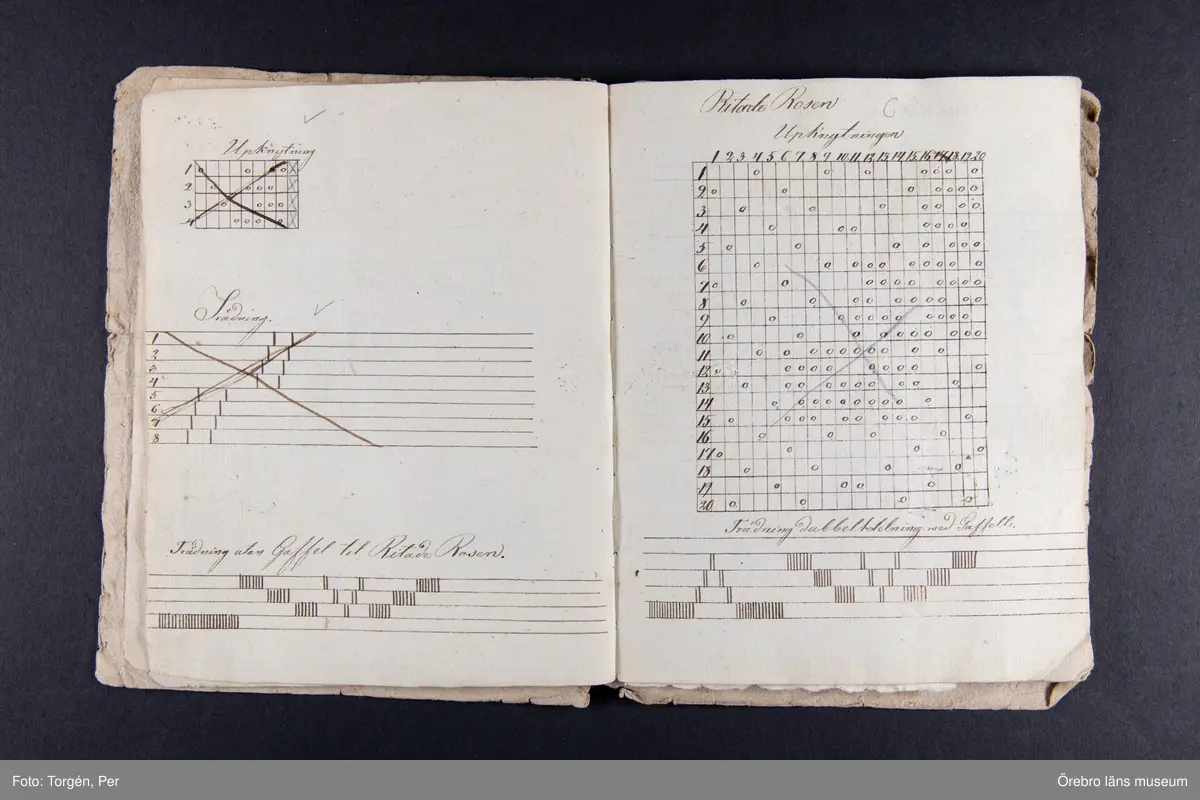 Upknytning
1
2
3
4
Trädning.
1
2
3
4
5
6
7
8
Trädning utan Gaffel til Ritade Rosen.
Ritade Rosen
Upknytningen
1 2 3 4 5 6 7 8 9 10 11 12 13 14 15 16 17 18 19 20
1
2
3
4
5
6
7
8
9
10
11
12
13
14
15
16
17
18
19
20
Trädning dubbel med Gaffell.
Foto: Torgén, Per
Örebro läns museum